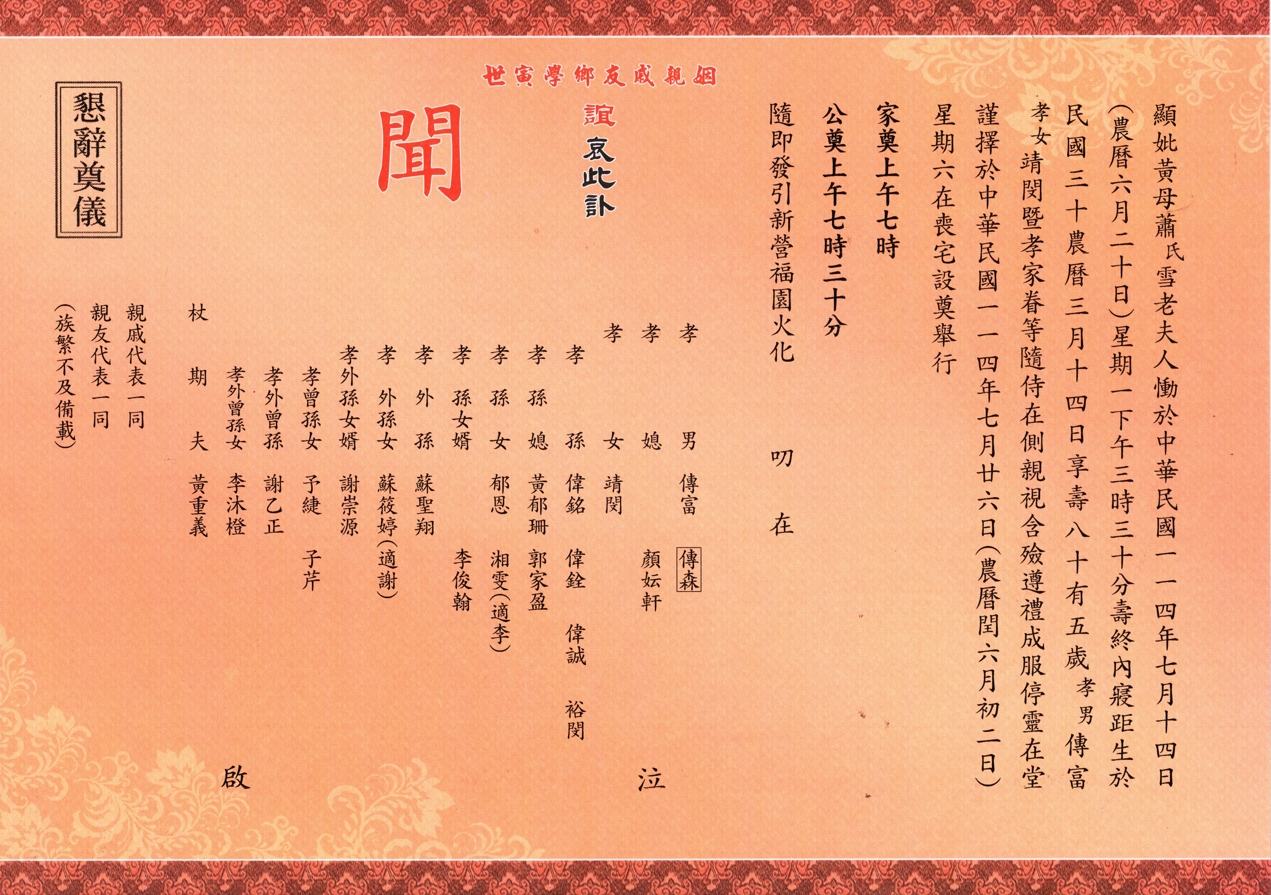 顯妣黃母蕭氏雪老夫人慟於中華民國一一四年七月十四日
(農曆六月二十日)星期一下午三時三十分壽終內寢距生於
民國三十農曆三月十四日享壽八十有五歲孝男傳富
孝女靖閔暨孝家眷等隨侍在側親視含殮遵禮成服停靈在堂
謹擇於中華民國一一四年七月廿六日(農曆閏六月初二日)
星期六在喪宅設奠舉行
家奠上午七時
公奠上午七時三十分
隨即發引新營福園火化
叨在
姻親戚友鄉學寅世
誼哀此訃
聞
孝男 傳富 傳森
孝媳 顏妘軒
孝女 靖閔
孝孫 偉銘 偉銓 偉誠 裕閔
孝孫媳 黃郁珊 郭家盈
孝孫女 郁恩 湘雯(適李)
孝孫女婿 李俊翰
孝外孫 蘇聖翔
孝外孫女 蘇筱婷(適謝)
孝外孫女婿 謝崇源
孝曾孫女 予緁 子芹
孝外曾孫 謝乙正
孝外曾孫女 李沐橙
杖期夫 黃重義
泣
啟
親戚代表一同
親友代表一同
(族繁不及備載)
懇辭奠儀